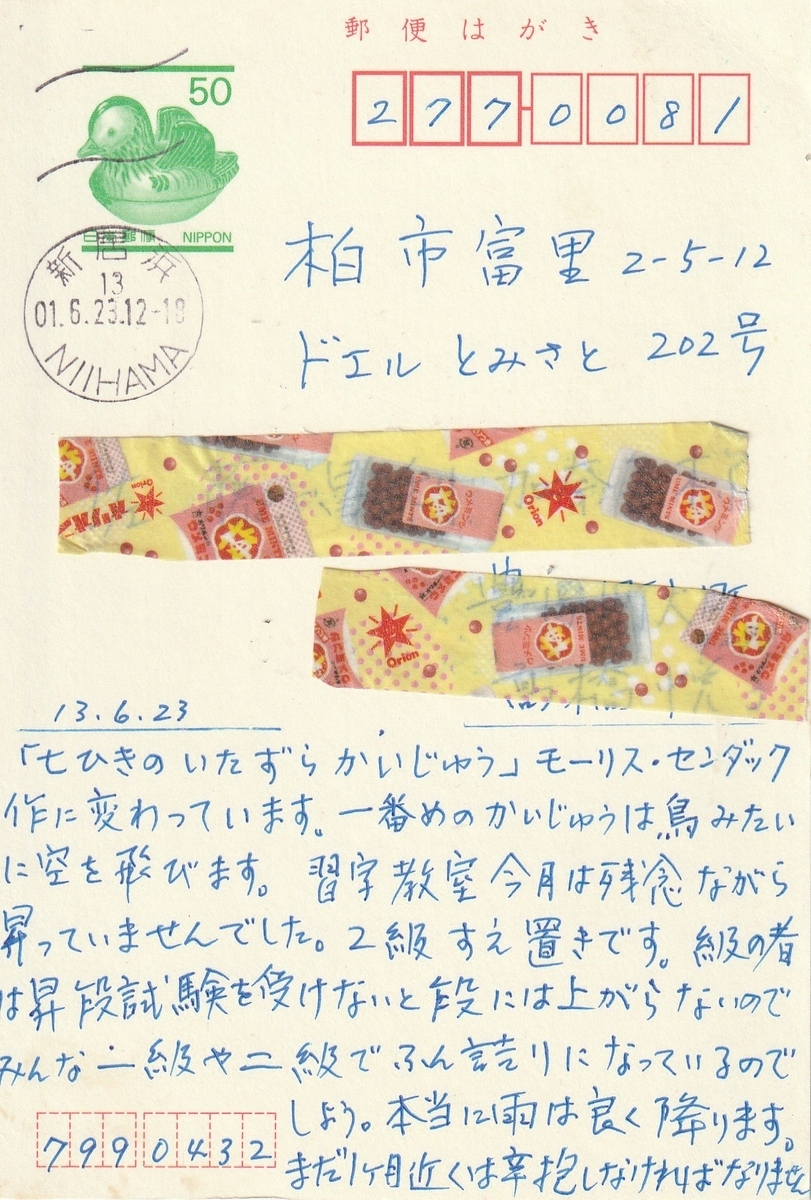 郵便はがき
50
日本郵便 NIPPON
新居浜
13
01.6.23.12-18
NIIHAMA
277-0081
柏市富里 2-5-12
ドエルとみさと 202号
Orion
Orion
UME MINTS
ウメミンツ
Orion
UME MINTS
ウメミンツ
13.6.23
「七ひきのいたずらかいじゅう」モーリス・センダック
作に変わっています。一番めのかいじゅうは鳥みたい
に空を飛びます。 習字教室今月は残念ながら
昇っていませんでした。2級すえ置きです。級の者
は昇段試験を受けないと段には上がらないので
みんな一級や二級でふん詰りになっているので
しょう。本当に雨は良く降ります。
まだ1ヶ月近くは辛抱しなければなりません
7990432